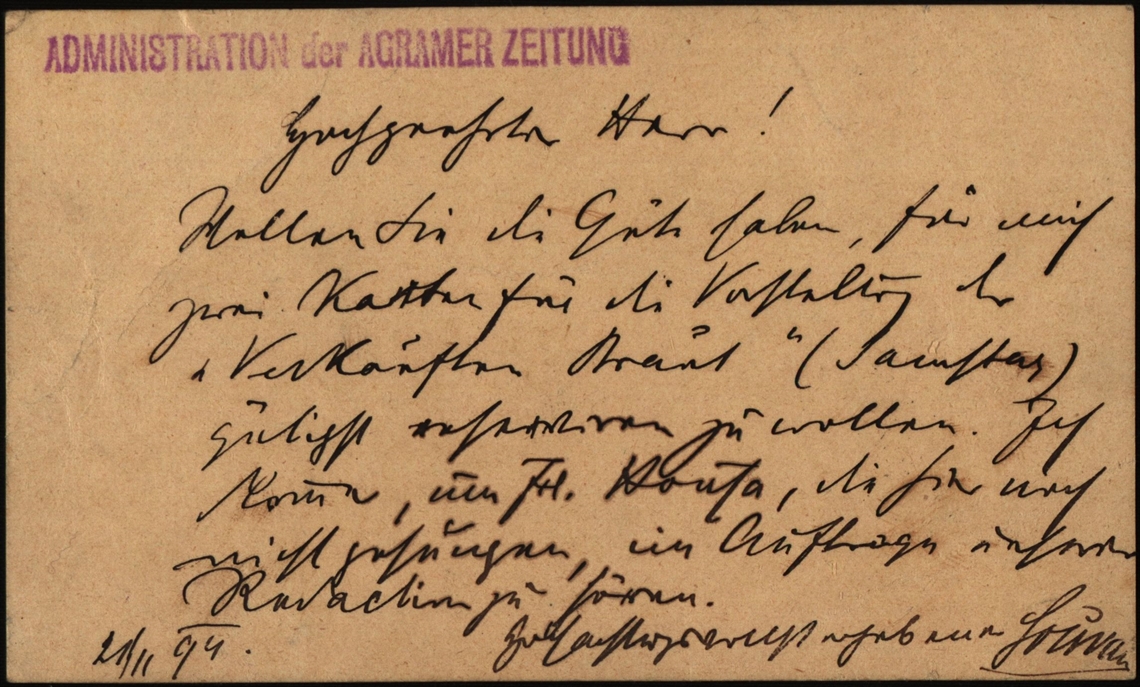 ADMINISTRATION der AGRAMER ZEITUNG
Hochgeehrter Herr!
Wollen Sie die Güte haben, für mich
zwei Karten für die Vorstellung der
„Verkauften Braut“ (Samstag)
gütigst reserviren zu wollen. Ich
komme, um Frl. , die hier noch
nicht gesungen, im Auftrage unserer
Redaction zu hören.
Hochachtungsvollst ergebener
21/11 94.